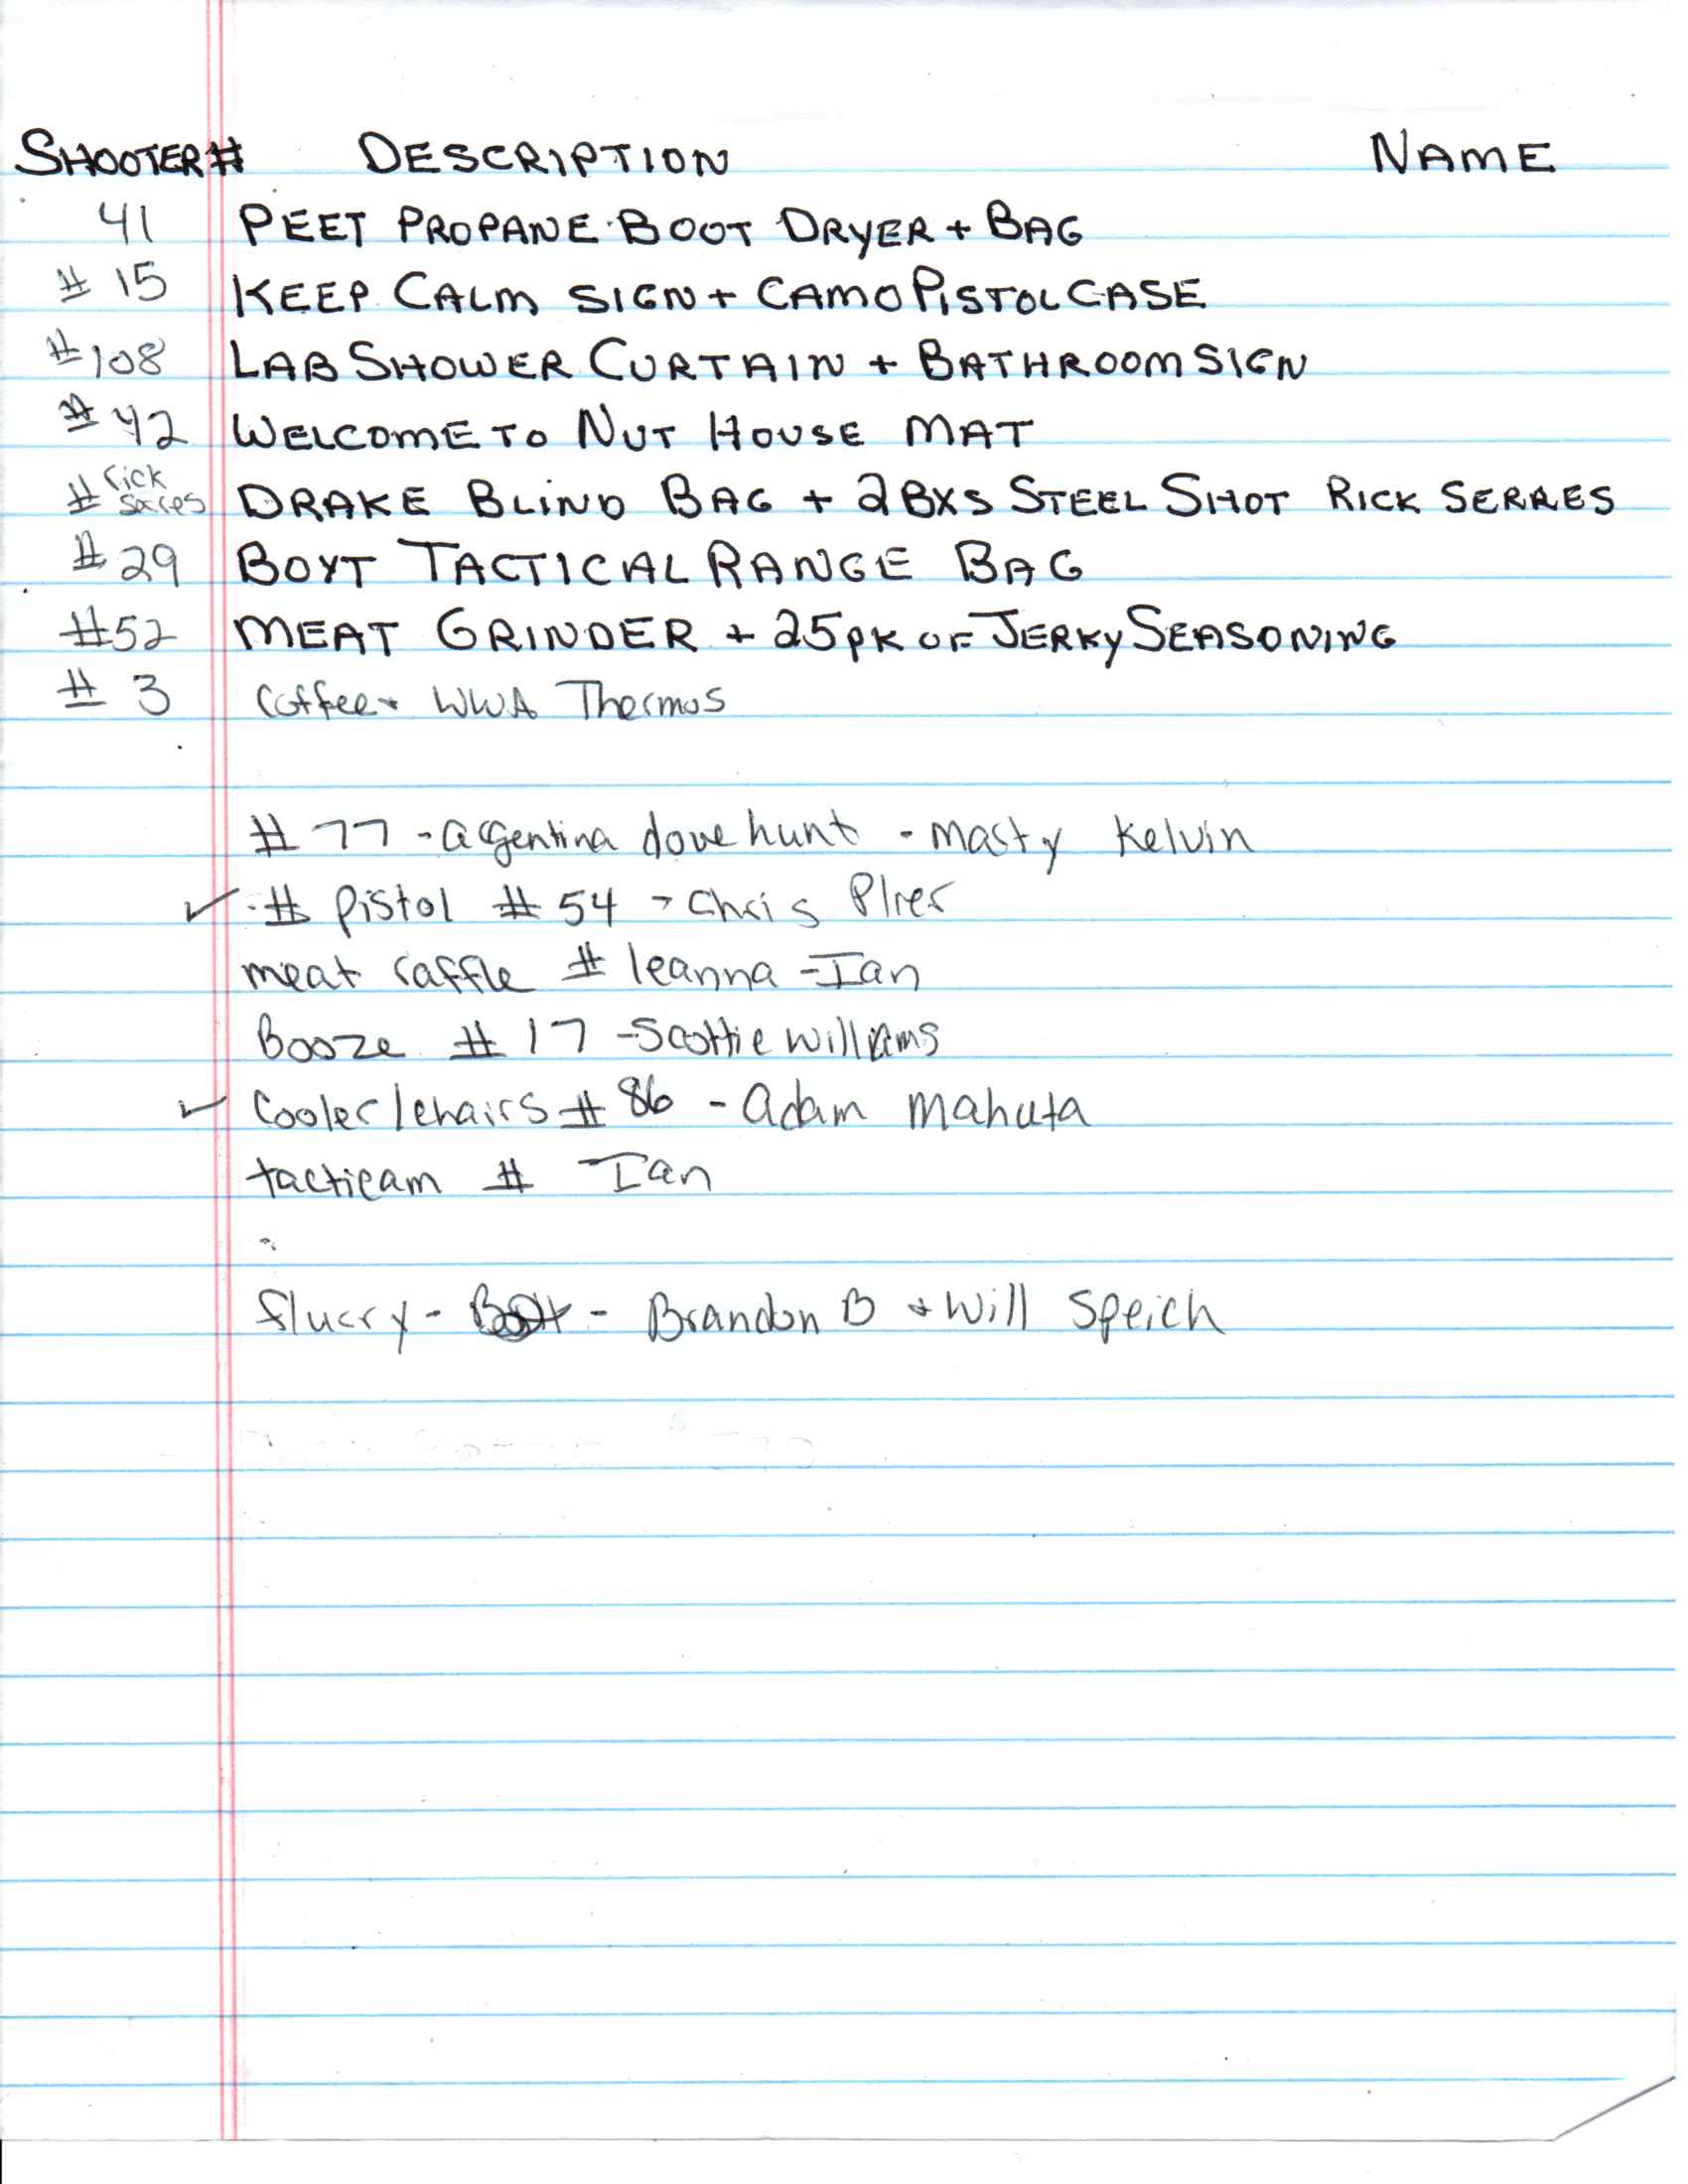 SHOOTER # DESCRIPTION NAME
41 PEET PROPANE BOOT DRYER + BAG
# 15 KEEP CALM SIGN + CAMO PISTOL CASE
#108 LAB SHOWER CURTAIN + BATHROOM SIGN
# 42 WELCOME TO NUT HOUSE MAT
# Rick Serres DRAKE BLIND BAG + 2 BXS STEEL SHOT RICK SERRES
# 29 BOYT TACTICAL RANGE BAG
#52 MEAT GRINDER + 25 PK OF JERKY SEASONING
# 3 Coffee + WWA Thermos
# 77 - argentina dove hunt - marty Kelvin
✓ # Pistol # 54 - Chris
meat raffle # leanna - Ian
Booze # 17 - Scottie williams
✓ Cooler/chairs # 86 - adam mahuta
tacticam # Ian
flurry - - Brandon B + Will Speich